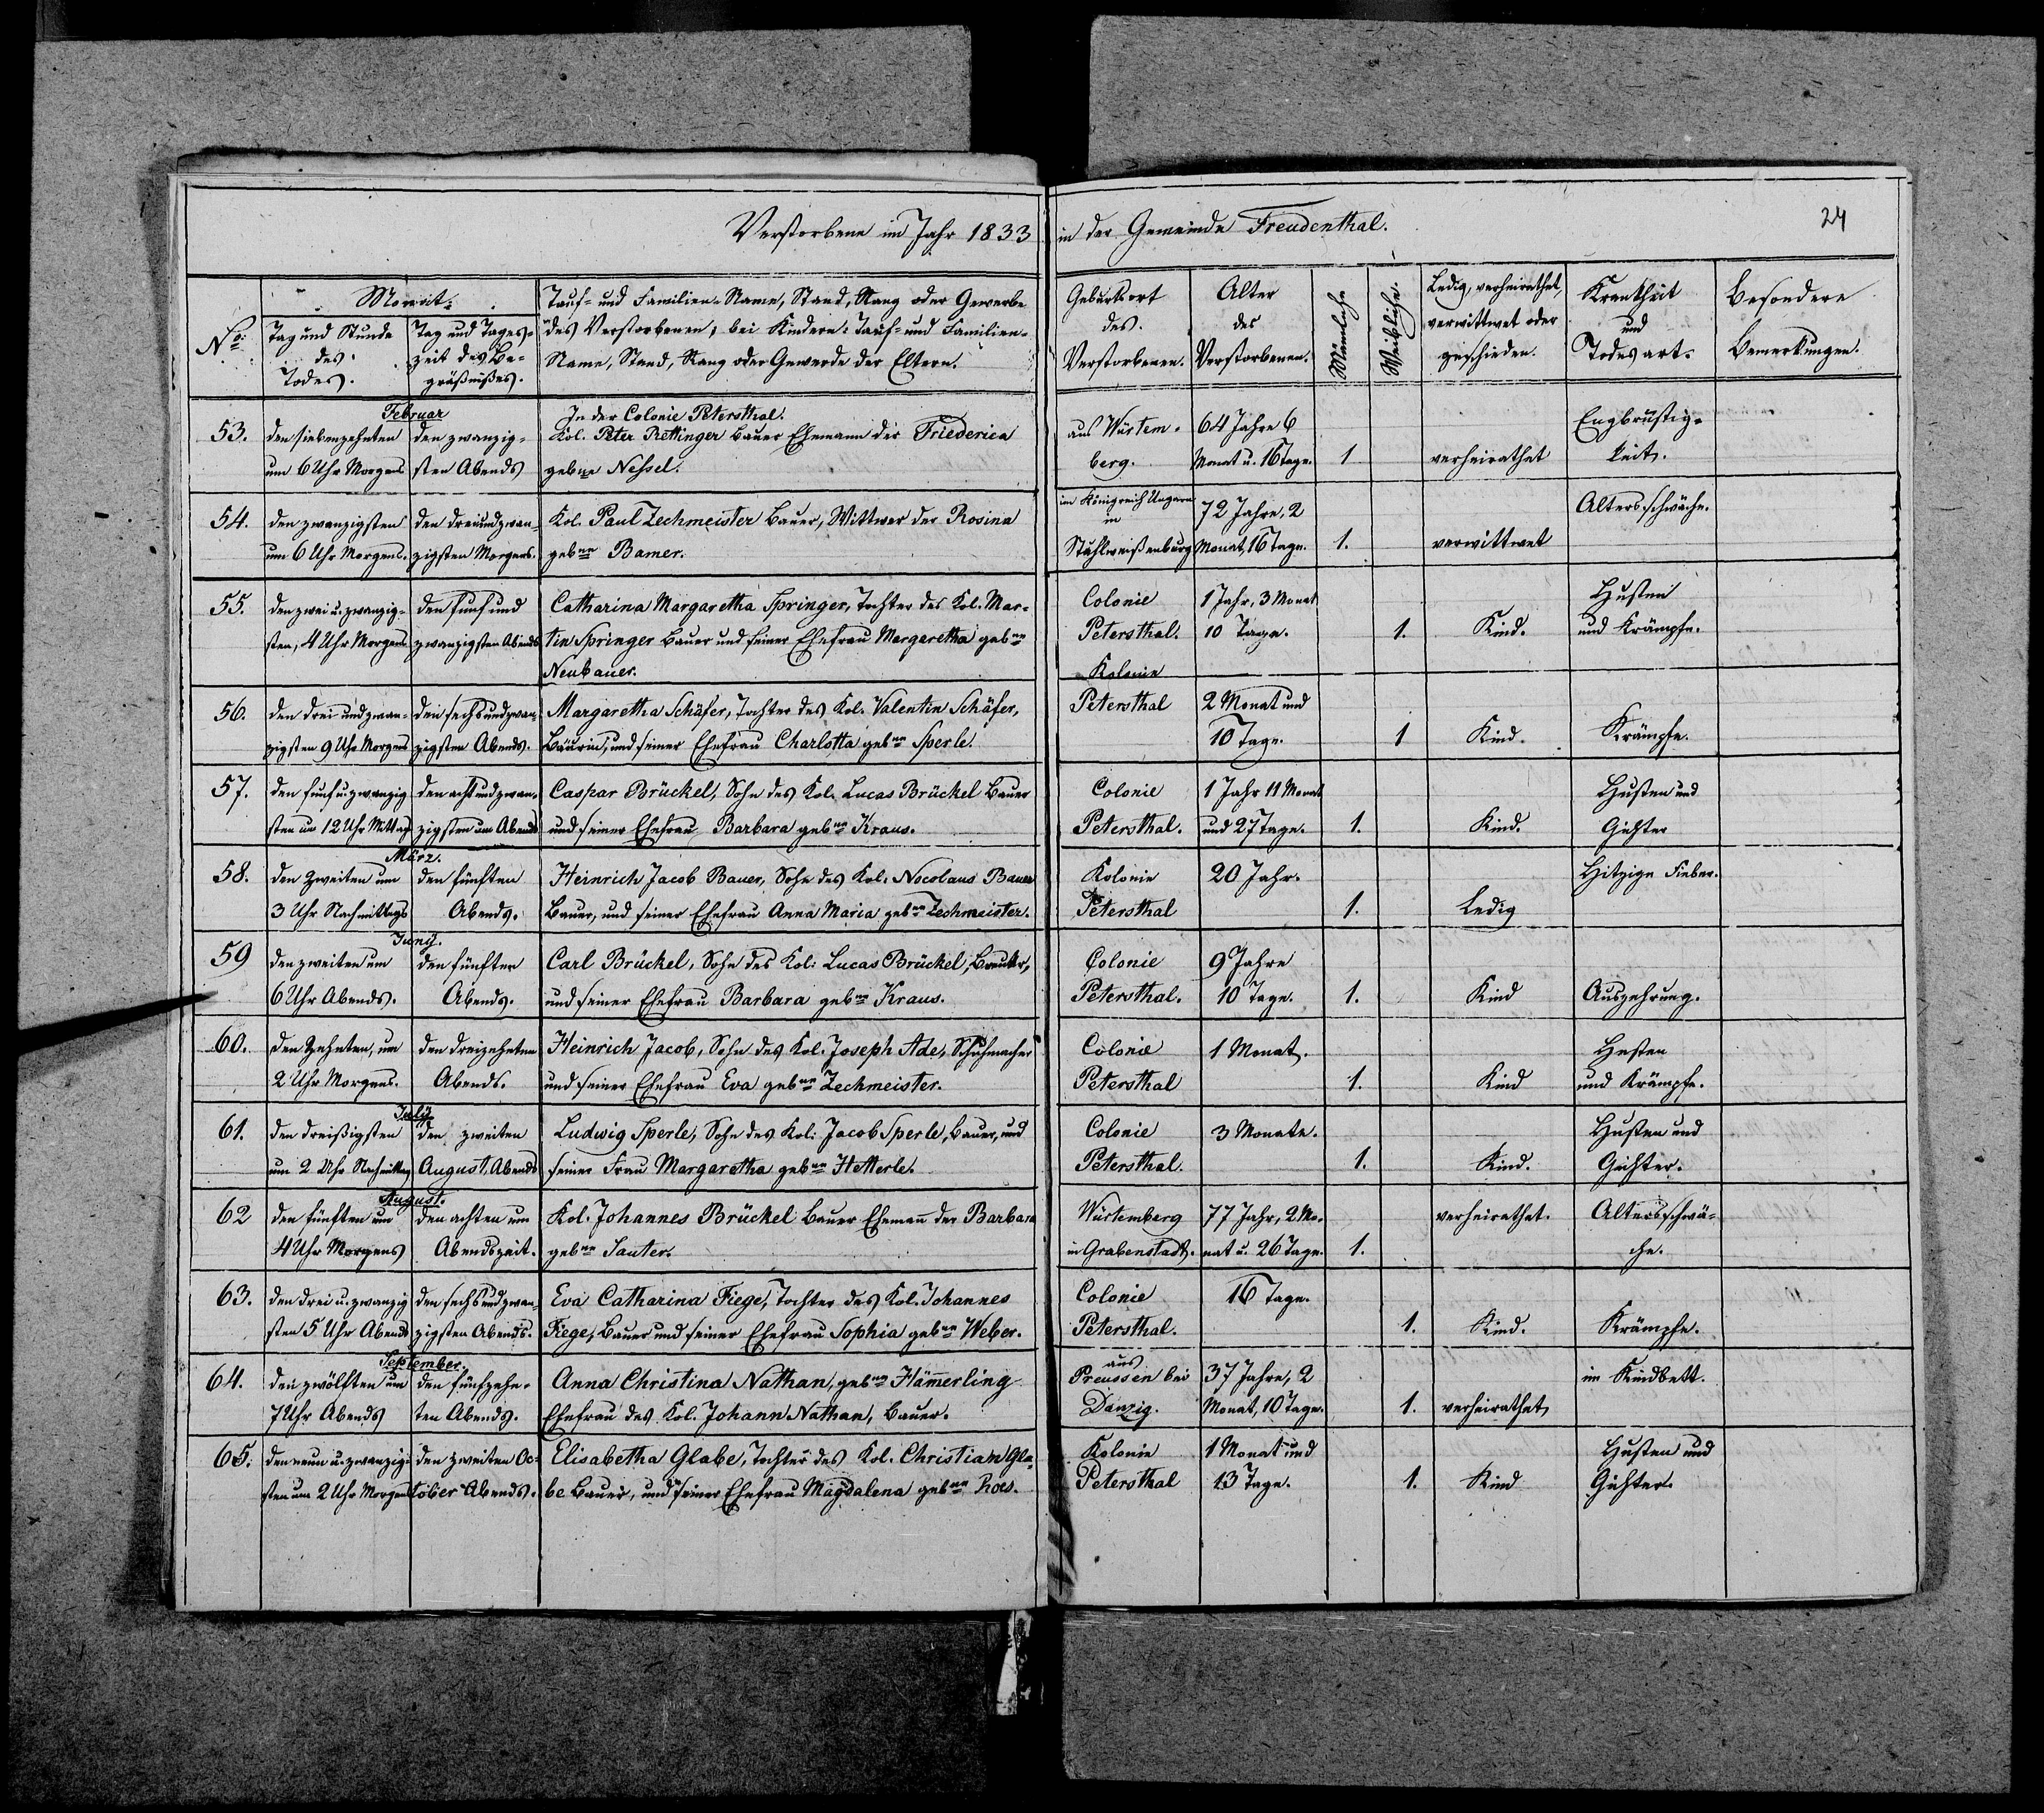 Verstorbene im Jahr 1833 in der Gemeinde Freudenthal.
24
No.
Monat.
Tag und Stunde des Todes.
Tag und Tageszeit des Begräßnißes.
Tauf- und Familien-Name, Stand, Rang oder Gewerbe
des Verstorbenen, bei Kindern: Tauf- und Familien-
Name, Stand, Rang oder Gewerbe der Eltern.
Geburtsort des Verstorbenen.
Alter des Verstorbenen.
Männliche
Weibliche.
Ledig, verheirathet, verwittwet oder geschieden.
Krankheit und Todesart.
Besondere Bemerkungen.
Februar
In der Colonie Petersthal.
53. den siebenzehnten den zwanzig- Kol. Peter Rettinger Bauer Ehemann der Friederica aus Würtem- 64 Jahre 6 Engbrüstig-
um 6 Uhr Morgens sten Abends gebne Nessel. berg. Monat u. 16 Tage. 1 verheirathet keit.
im Königreich Ungarn
54. den zwanzigsten den dreiundzwan- Kol. Paul Zechmeister Bauer, Wittwer der Rosina in 72 Jahre, 2 Altersschwäche.
um 6 Uhr Morgens. zigsten Morgens. gebne Bamer. Stuhlweißenburg Monat, 16 Tage. 1. verwittwet
55. den zwei u. zwanzig- den fünf und Catharina Margaretha Springer, Tochter des Kol. Mar- Colonie 1 Jahr, 3 Monat Husten
sten, 4 Uhr Morgens zwanzigsten Abends tin Springer Bauer und seiner Ehefrau Margaretha gebne Petersthal. 10 Tage. 1. Kind. und Krämpfe.
Neubauer. Kolonie
56. den drei und zwan- den sechsundzwan- Margaretha Schäfer, Tochter des Kol. Valentin Schäfer, Petersthal 2 Monat und
zigsten 9 Uhr Morgens zigsten Abends. Bäurin, und seiner Ehefrau Charlotta gebne Sperle. 10 Tage. 1 Kind. Krämpfe.
57. den fünf u. zwanzig den acht und zwan- Caspar Brückel, Sohn des Kol. Lucas Brückel Bauer Colonie 1 Jahr 11 Monat Husten und
sten um 12 Uhr Mittag zigsten um Abends und seiner Ehefrau Barbara gebne Kraus. Petersthal. und 27 Tage. 1. Kind. Gichter
März.
58. den zweiten um den fünften Heinrich Jacob Bauer, Sohn des Kol. Nocolaus Bauer Kolonie 20 Jahr. Hitzige Fieber.
3 Uhr Nachmittags Abends. Bauer, und seiner Ehefrau Anna Maria gebne Zechmeister. Petersthal 1. Ledig
Juny.
59 den zweiten um den fünften Carl Brückel, Sohn des Kol: Lucas Brückel, Colonie 9 Jahre
6 Uhr Abends. Abends. und seiner Ehefrau Barbara gebne Kraus. Petersthal. 10 Tage. 1. Kind Auszehrung.
60. den Zehnten, um den dreizehnten Heinrich Jacob, Sohn des Kol. Joseph Ade, Schuhmacher Colonie 1 Monat. Husten
2 Uhr Morgens. Abends. und seiner Ehefrau Eva gebne Zechmeister. Petersthal 1. Kind und Krämpfe.
July
61. den dreißigsten den zweiten Ludwig Sperle, Sohn des Kol: Jacob Sperle, Bauer, und Colonie 3 Monate. Husten und
um 2 Uhr Nachmittag August, Abends seiner Frau Margaretha gebne Hetterle. Petersthal. 1. Kind. Gichter.
August.
62 den fünften um den achten um Kol. Johannes Brückel Bauer Ehemañ der Barbara Würtemberg 77 Jahr, 2 Mo- verheirathet. Altersschwä-
4 Uhr Morgens Abendszeit. gebne Sauter. in Grabenstadt. nat u. 26 Tage. 1. che.
63. den drei u. zwanzig den sechsundzwan- Eva Catharina Fiege, Tochter des Kol. Johannes Colonie 16 Tage.
sten 5 Uhr Abends zigsten Abends. Fiege, Bauer und seiner Ehefrau Sophia gebne Weber. Petersthal. 1. Kind. Krämpfe.
September. aus
64. den zwölften um den fünfzehn- Anna Christina Nathan, gebne Hämerling Preussen bei 37 Jahre, 2 im Kindbett.
7 Uhr Abends ten Abends. Ehefrau des Kol. Johann Nathan, Bauer. Danzig. Monat, 10 Tage. 1. verheirathet
65. den neun u. zwanzig- den zweiten Oc- Elisabetha Glabe, Tochter des Kol. Christian Gla- Kolonie 1 Monat und Husten und
sten um 2 Uhr Morgens tober Abends. be Bauer, und seiner Ehefrau Magdalena gebne Roes. Petersthal 13 Tage. 1. Kind Gichter.